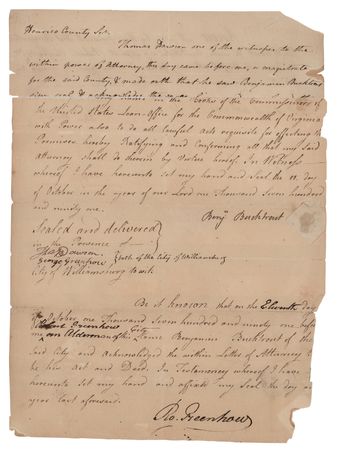 Henrico County Sct.
Thomas Dawson one of the witnesses to the
within power of Attorney, this day came before me, a magistrate
for the said County, & made oath that he saw Benjamin Bucktrout
sign seal &
my name in the Books of the Commissioner of
the United States Loan Office for the Commonwealth of Virginia
with Power also to do all Lawful Acts requisite for effecting the
Premises hereby Ratifying and Confirming all that my said
Attorney shall do therein by Virtue hereof. In Witness
whereof I have hereunto set my hand and Seal the 11. day
of October in the year of our Lord one Thousand Seven hundred
and ninety one.
Benj Bucktrout
Sealed and delivered
in the Presence of
Thos Dawson
George Greenhow both of the City of Williamsburg
City of Williamsburg to wit
Be it known that on the Eleventh day
of October, one Thousand Seven hundred and ninety one before
me Robert Greenhow an Alderman of the City Came Benjamin Bucktrout of the
said City and Acknowledged the within Letter of Attorney to
be his Act and Deed. In Testamony whereof I have
hereunto set my hand and affixed my Seal the day &
year last aforesd.
Ro. Greenhow